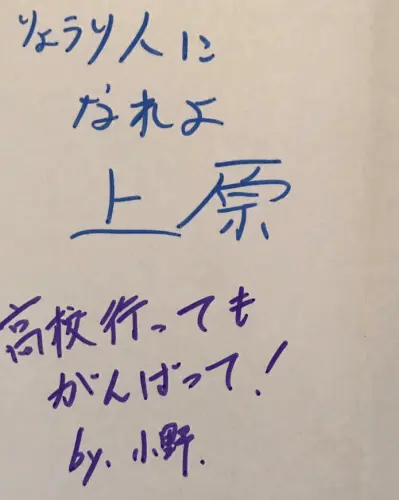 りょうり人に
なれよ
上原
高校行っても
がんばって!
by.小野.